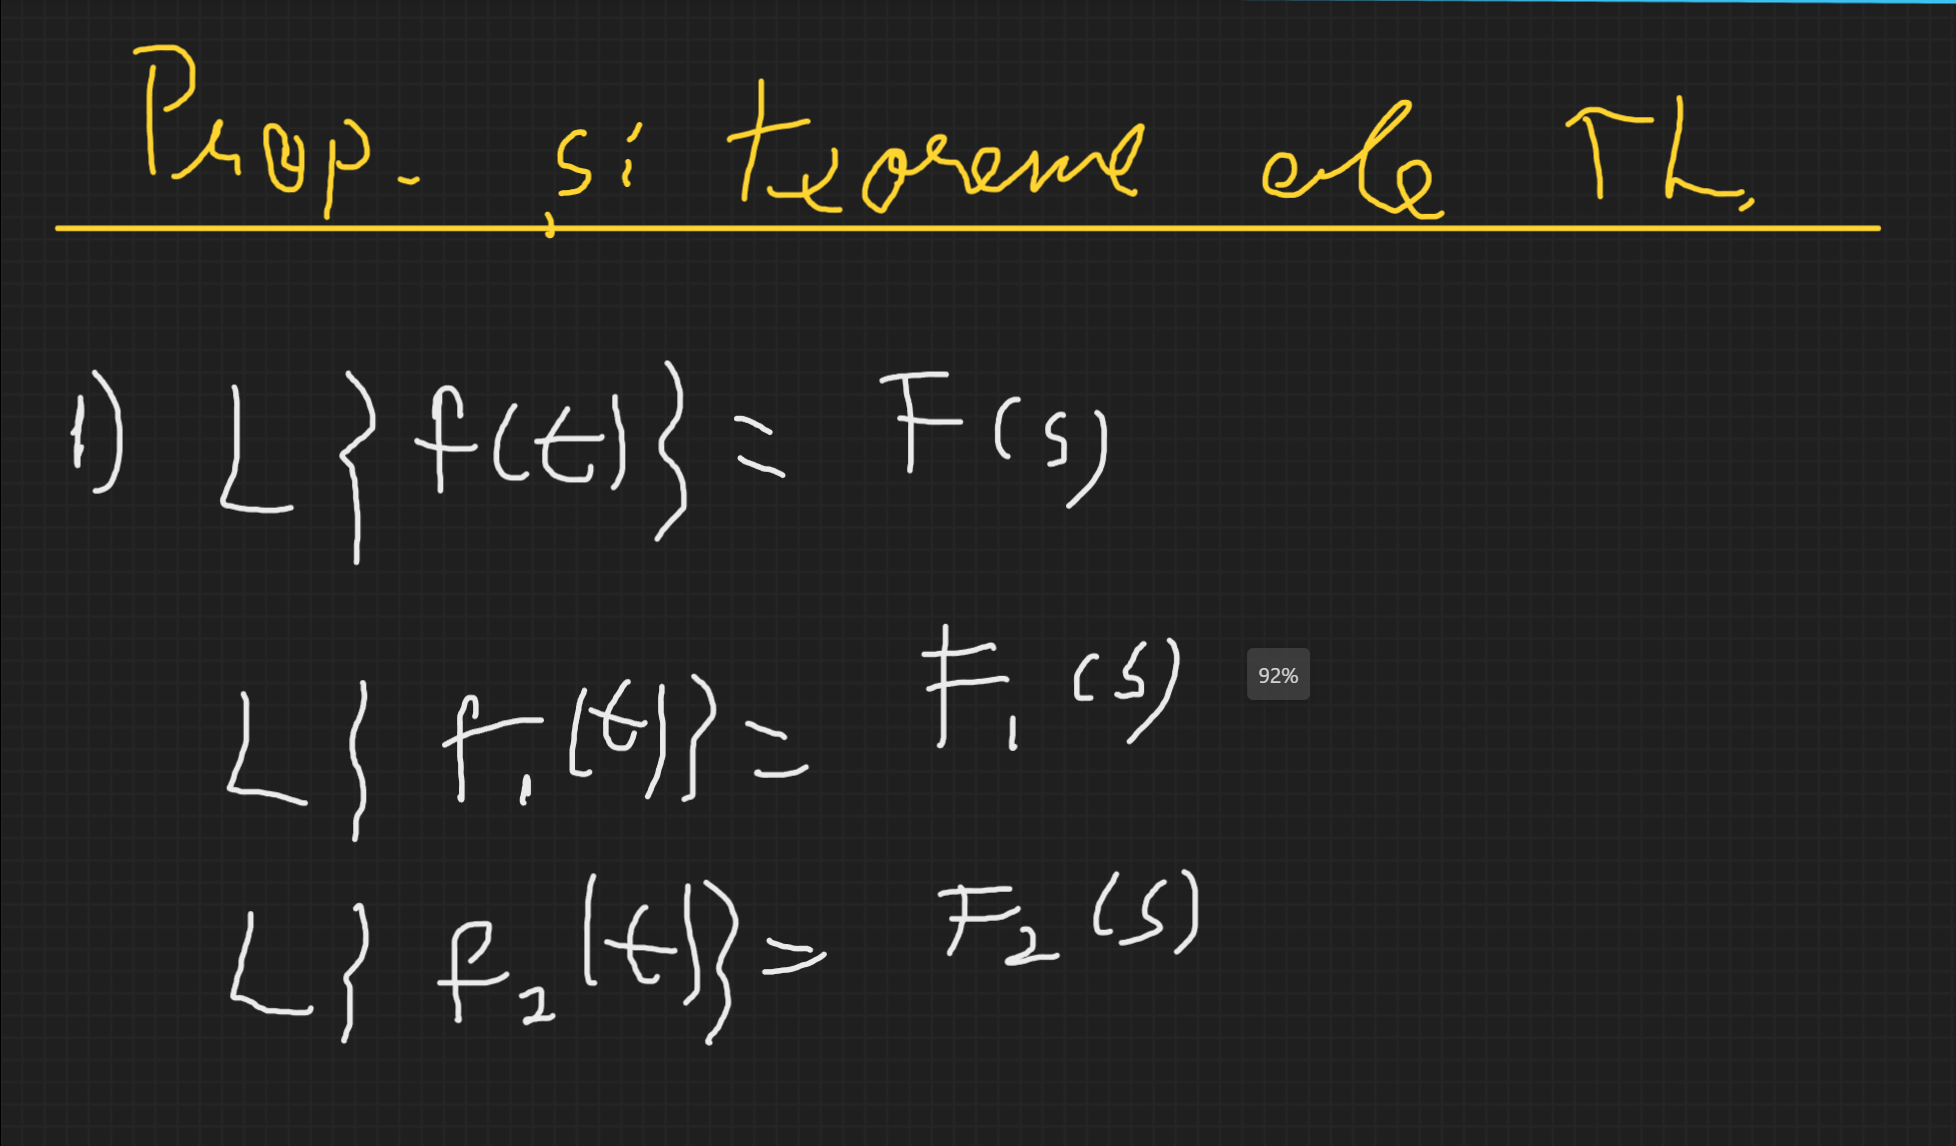 Prop. și teoreme ale TL.
1) L{f(t)} = F(s)
L{f₁(t)} = F₁(s)
92%
L{f₂(t)} = F₂(s)